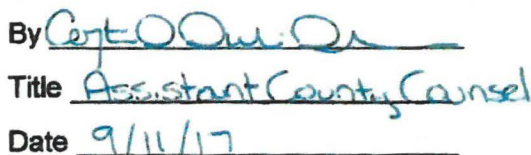 By
Title Assistant County Counsel
Date 9/11/17